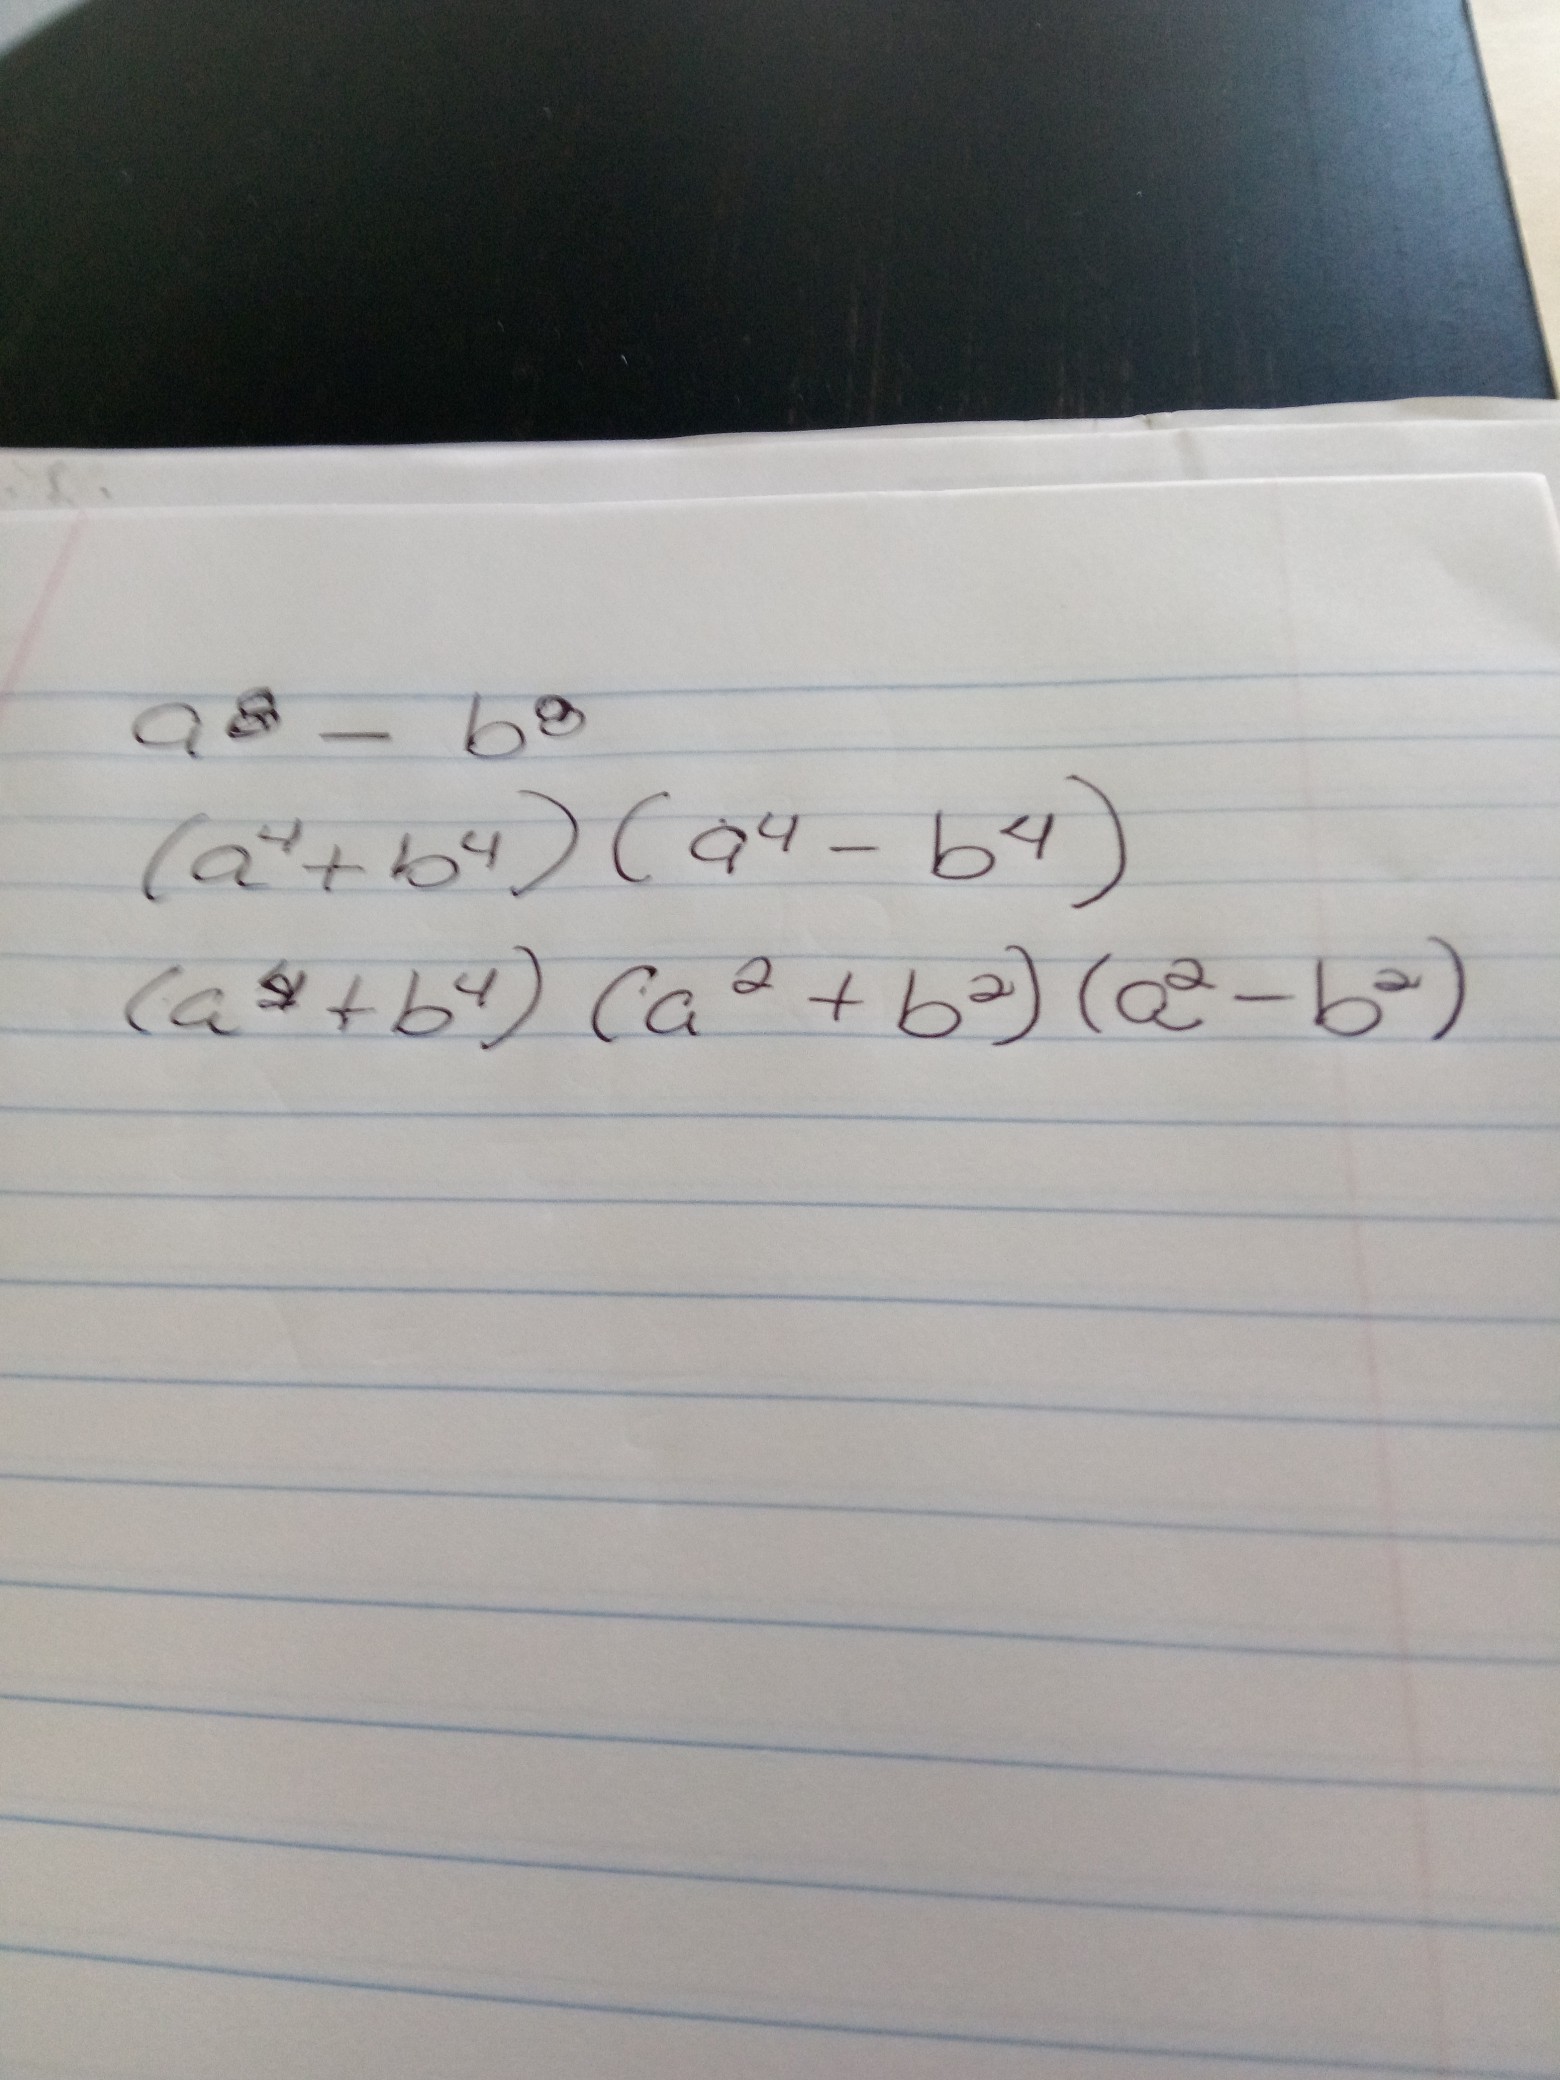 a⁸ - b⁸
(a⁴ + b⁴) (a⁴ - b⁴)
(a⁴ + b⁴) (a² + b²) (a² - b²)